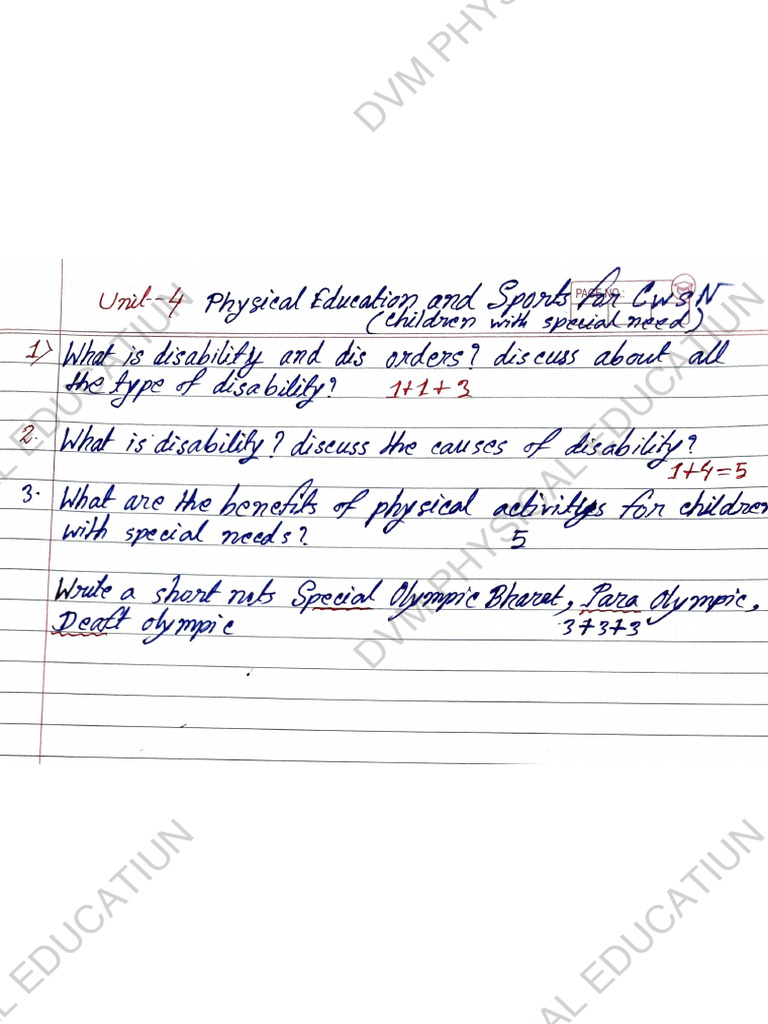 DVM PHYS
PAGE NO.:
Unit-4 Physical Education and Sports for CWSN
(children with special need)
1) What is disability and dis orders? discuss about all
the type of disability? 1+1+3
2. What is disability? discuss the causes of disability?
1+4=5
3. What are the benefits of physical activities for children
with special needs? 5
Write a short nots Special Olympic Bharat, Para Olympic,
Deaft olympic 3+3+3
AL EDUCATIUN
DVM PHYSICAL EDUCATIUN
AL EDUCATIUN
AL EDUCATIUN